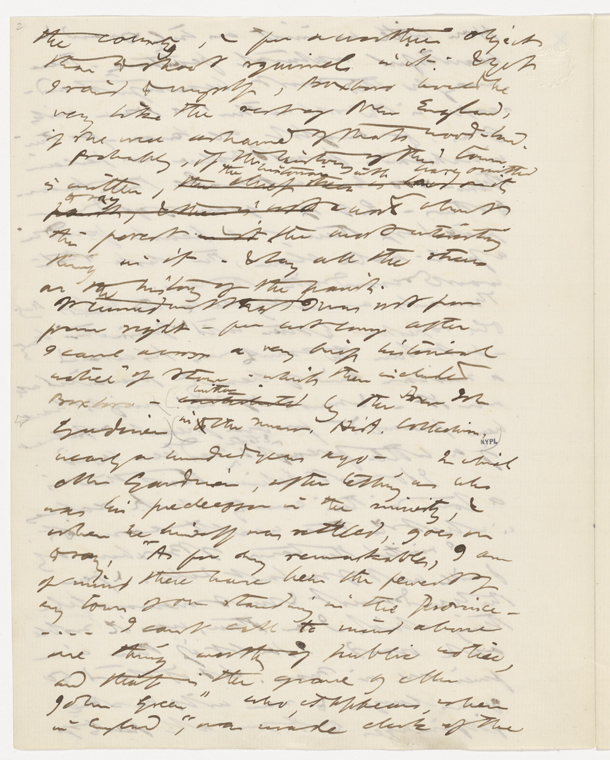 2
the county, & for a worthier object
than to shoot squirrels in it. & yet
I said to myself, Boxboro would be
very like the rest of New England,
if she were ashamed of that woodland.
Probably, if the history of this town
the historian will have omitted
is written, the chief thing is
to say
a word about
this forest the most interesting
thing in it - & lay all the stress
on the history of the parish.
It turned out that I was not far
from right - for not long after
I came across a very brief historical
notice of Stow - which then included
written
Boxboro - contributed by the Rev John
Gardner in the Mass. Hist. Collections,
NYPL
nearly a hundred years ago. In which
Mr Gardner, after telling us who
was his predecessor in the ministry, &
when he himself was settled, goes on
to say, "As for any remarkables, I am
of mind there have been the fewest of
any town of our standing in the Province -
.... I can't call to mind above
one thing worthy of public notice,
and that is the grave of Mr
John Green" who, it appears, when
in England, "was made clerk of the